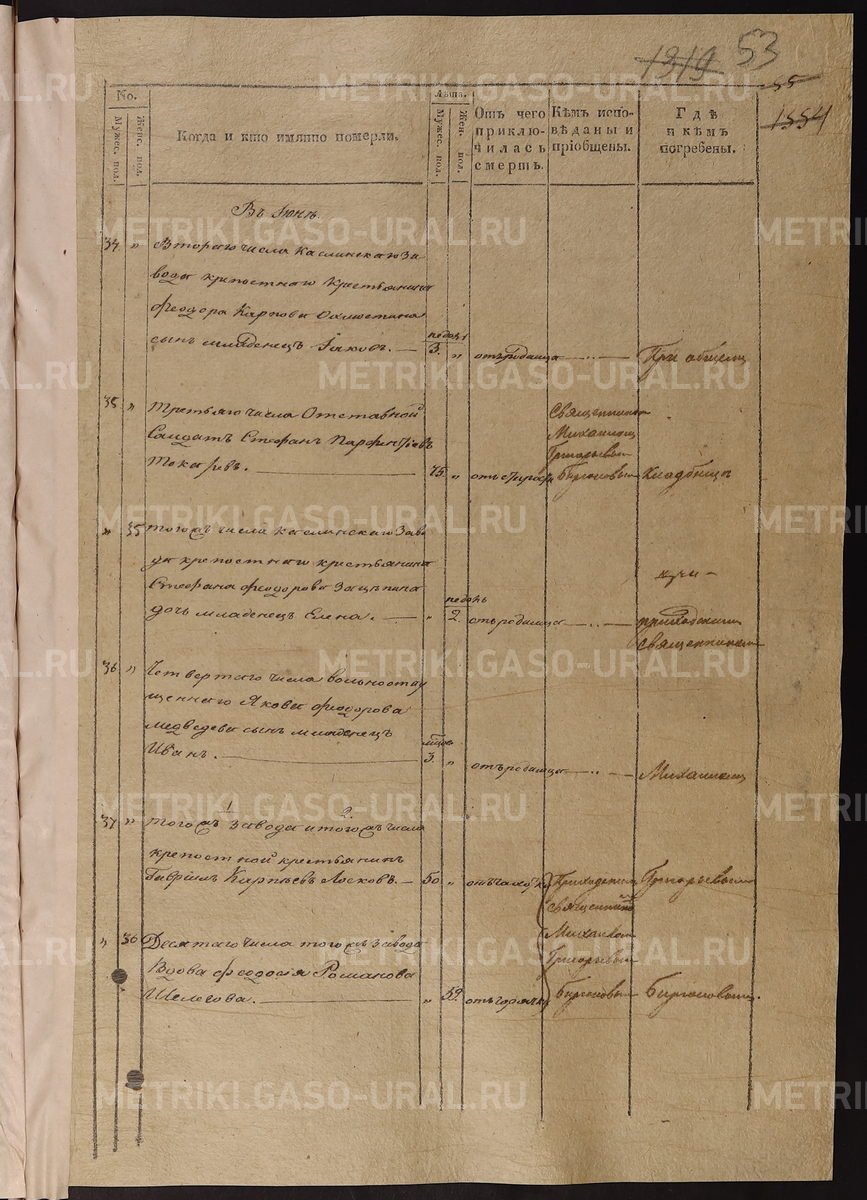 1319 53
55
1554
No.
Мужес. пол.
Женс. пол.
Когда и кто имянно померли.
Лѣта.
Мужес. пол.
Жен. пол.
Отъ чего приключилась смерть.
Кѣмъ исповѣданы и пріобщены.
Гдѣ и кѣмъ погребены.
Въ Іюнѣ.
34 „ Втораго числа Каслинскаго За-
вода крепостнаго крестьянина
Феодора Карпова
сынъ младенецъ Іаковъ. — недѣль 3. „ отъ родимца — „ — При общемъ
35 „ Третьяго числа Отставной
Салдатъ Стефанъ Парфентьевъ
Токаревъ. — 75. „ отъ старости
Священникомъ
Михаиломъ
Григорьевымъ
Бирюковымъ
Кладбищѣ
„ 35 Тогожъ числа Каслинскаго Заво-
да крепостнаго крестьянина
Стефана Феодорова Зацепина
дочь младенецъ Елена. — „ недѣль 2. отъ родимца — „ —
приходскимъ
священникомъ
36 „ Четвертаго числа вольноотпу-
щеннаго Якова Феодорова
Медведева сынъ младенецъ
Иванъ. — 3. „ отъ родимца — „ — Михаиломъ
37 „ Тогожъ Завода и тогожъ числа
1 2.
крепостной крестьянинъ
Гавріилъ Карпьевъ Лосковъ. — 50 „
Приходскимъ
священникомъ
Михаиломъ
Григорьевымъ
Бирюковымъ
Григорьевымъ
„ 36 Десятаго числа тогожъ Завода
Вдова Феодосія Романова
Шелегова. — „ 59. отъ горячки
Бирюковымъ.
METRIKI.GASO-URAL.RU